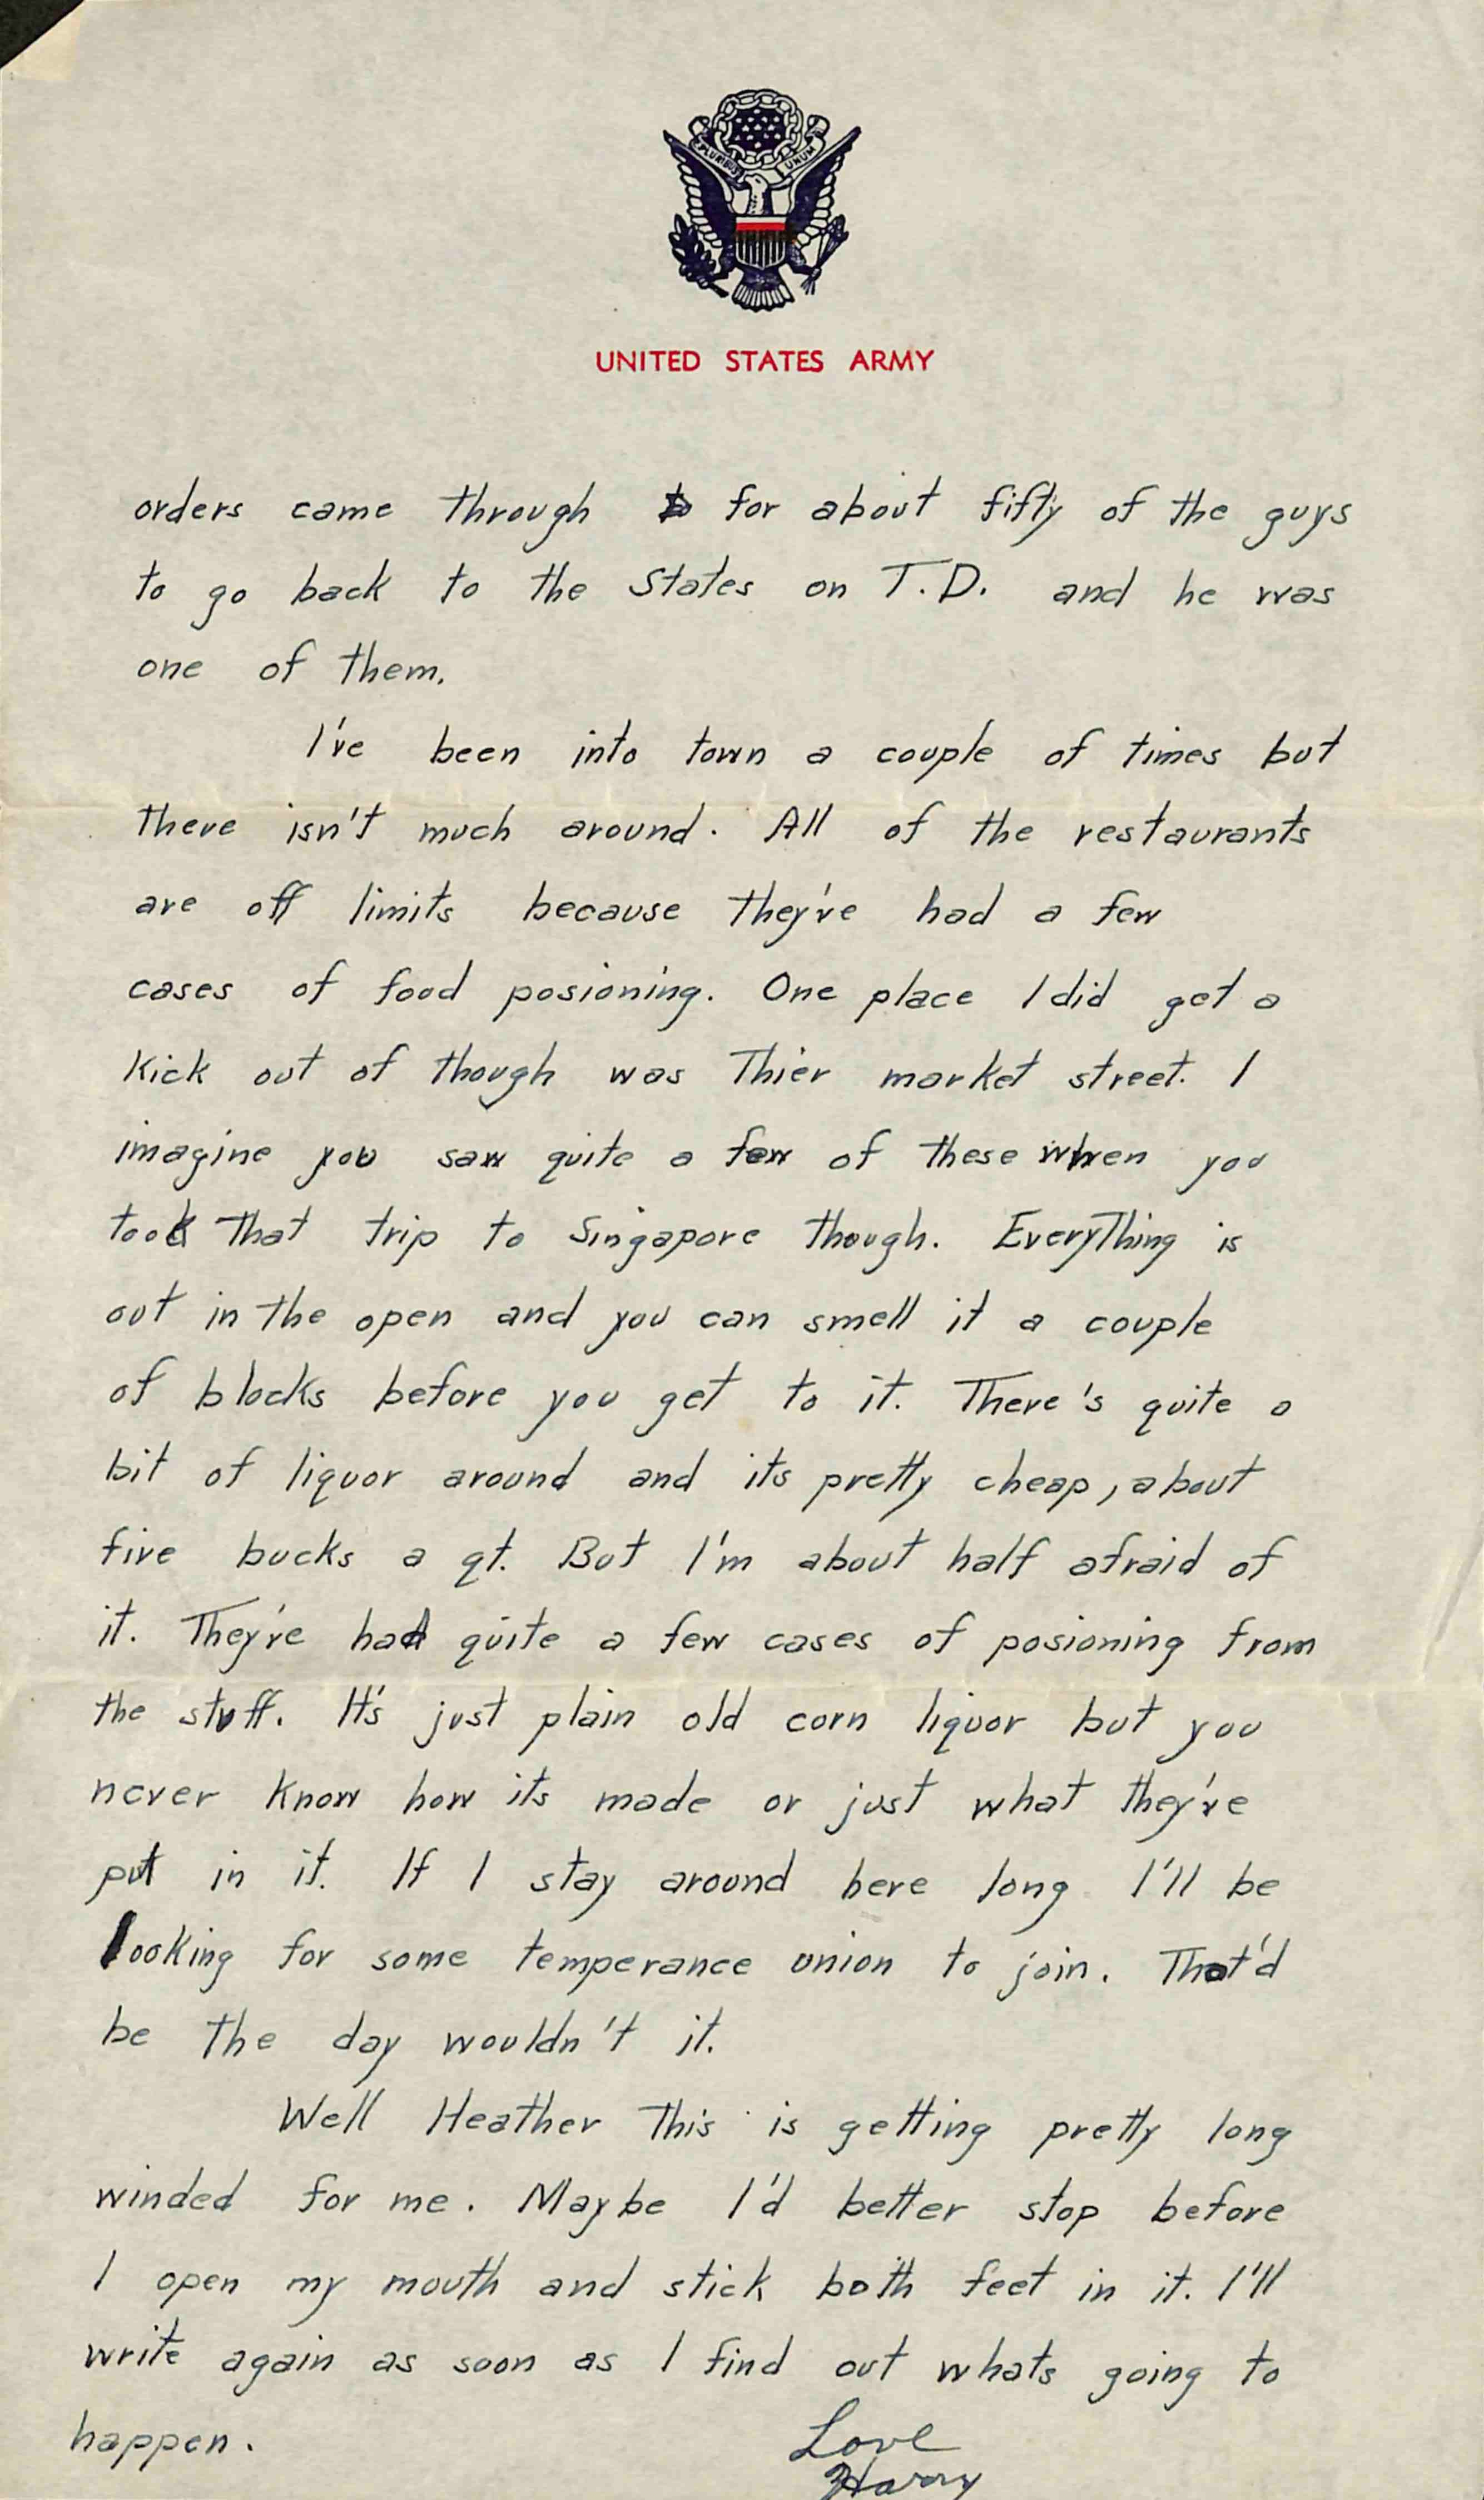 PLURIBUS UNUM
UNITED STATES ARMY
orders came through for about fifty of the guys
to go back to the States on T.D. and he was
one of them.
I've been into town a couple of times but
there isn't much around. All of the restaurants
are off limits because they've had a few
cases of food posioning. One place I did get a
kick out of though was thier market street. I
imagine you saw quite a few of these when you
took that trip to Singapore though. Everything is
out in the open and you can smell it a couple
of blocks before you get to it. There's quite a
bit of liquor around and its pretty cheap, about
five bucks a qt. But I'm about half afraid of
it. They've had quite a few cases of posioning from
the stuff. It's just plain old corn liquor but you
never know how its made or just what they've
put in it. If I stay around here long I'll be
looking for some temperance union to join. That'd
be the day wouldn't it.
Well Heather this is getting pretty long
winded for me. Maybe I'd better stop before
I open my mouth and stick both feet in it. I'll
write again as soon as I find out whats going to
happen.
Love
Harry